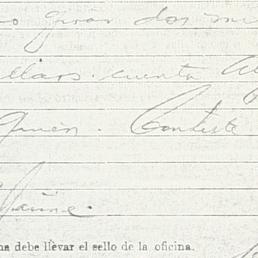 girar dos mi
llars. cuenta
Quien. Conteste
na debe llevar el sello de la oficina.